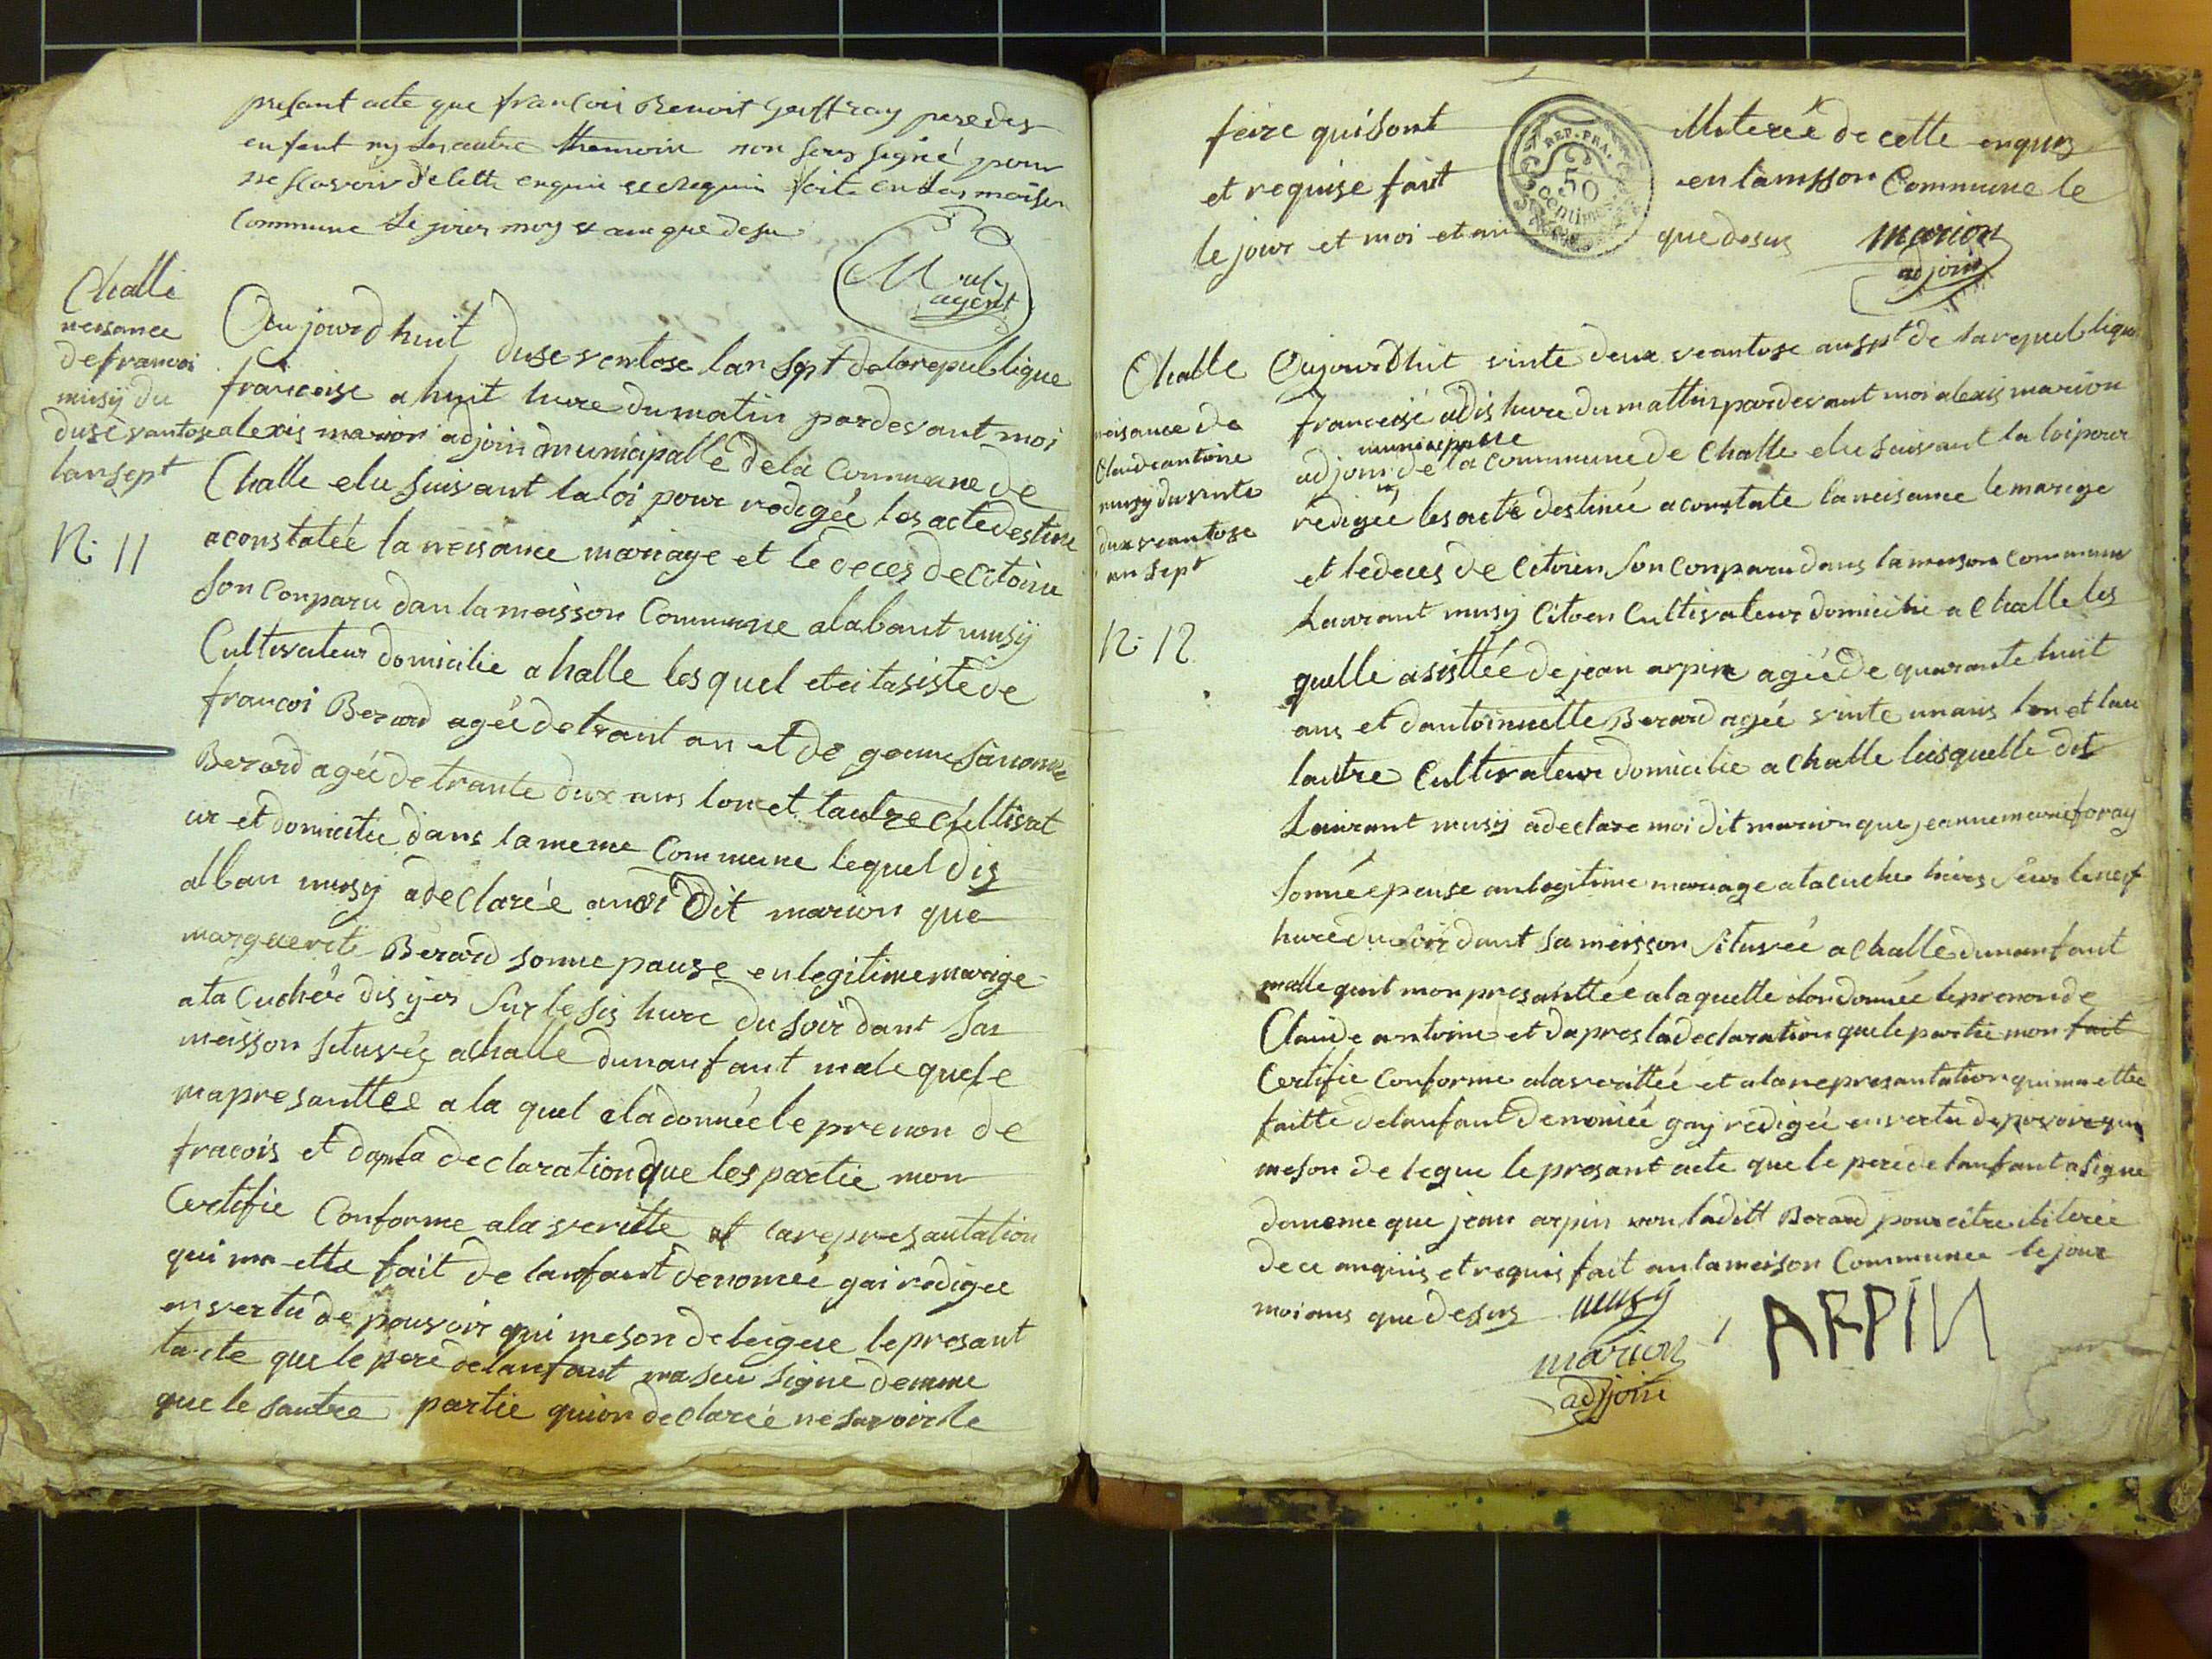 presant acte que francois Benoit Geoffray pere des
enfant ny les autre themoin non seus signé pour
ne scavoir de lette enquis et requis fait en la maison
Commune le jour moy et an que desu
agent
Challe
neisance
de francoi
musy du
duse vantose
lan sept
N. 11
Oau jourd huit duse ventose lan sept de la republique
francoise a huit hure du matin pardevant moi
alexis marion adjoin municipalle de la Commune de
Challe elu suivant la loi pour rodigée les acte destine
a constatée la neisance mariage et le deces de citoine
son conparu dan la meisson Commune alabant musÿ
Cultivateur domicilie a halle les quel etei tasiste de
francoi Berard agée de trant an et de geanne
Berard agée de trante dux ans lon et lautre Cultivat
ur et domicilie dans la meme Commune lequel dis
alban musy a declarée a moi Dit marion que
marguerite Berard sonne pause en legitime mariage
ata Cuchér dis yer sur le sis hure du soir dant sa
meisson situvée achalle dunanfant male quele
mapresanttee a la quel ela donnée le prenon de
fracois et dapre la declaration que les partie mon
Certifie Conforme ala veritte et la represantation
qui ma ette fait de lanfant denomée gai rodigee
en vertu de pouvoir qui meson delegue le presant
tacte que le pere de lanfant ma seu signe dememe
que le sautre partie quion declarée ne savoir le
feire quisont illiterée de cette enquis
et requise fait en lameisson Commune le
le jour et moi et an que desus marion
adjoin
REP. FRA.
50
centimes
Challe
neisance de
Claude antoine
musy du vinte
dux veantose
an sept
N. 12
Oujourdhuit vinte deux veantose an sept de la republique
francoise adis hure du mattin pardevant moi alexis marion
municipalle
adjoin de la Commune de Challe elu suivant la loi pour
redigée les acte destinée a constate la neisance le marige
et le deces de citoien son conparu dans la meison commune
Laurant musy Citoen Cultivateur domicilie a Challe les
quelle asisttée de jean arpin agée de quarante huit
ans et dantoinnette Berard agée vinte un ans lon et lau
lautre Cultivateur domicilie a Challe lusquelle dit
Laurant musÿ a declare moi dit marion que jeanne marie foray
sonnée peuse an legitime mariage ata cuche hiers seur le neuf
hure du soir dant sa meisson situvée a Challe dunanfant
malle quil mon presanttée a laquelle ilon donnée le prenon de
Claude antoine et dapres la declaration que le partie mon fait
Certifie Conforme ala verittée et ala represantation qui ma ettee
faitte de lanfant denomée gay redigée en vertu de povoire qui
meson delegue le presant acte que le pere de lanfant a signe
dememe que jean arpin non laditt Berard pour eitre iliterée
de ce anquis et requis fait an la meison Commune le jour
moi ans que desus musy
marion
adjoin
ARPIN